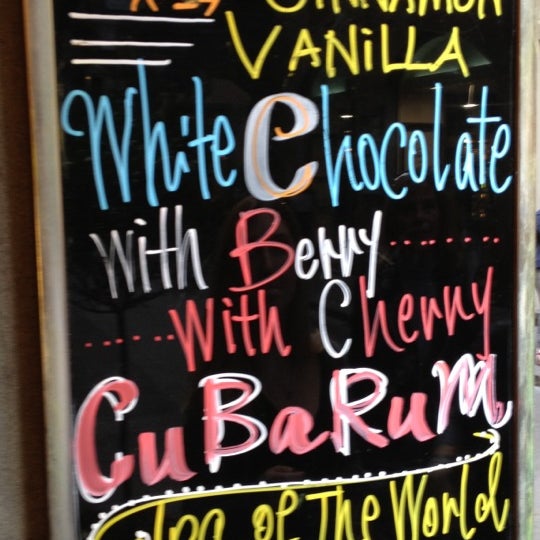 CINNAMON
VANiLLA
White Chocolate
with Berry........
......with Cherry
CuBaRum
Top of The World